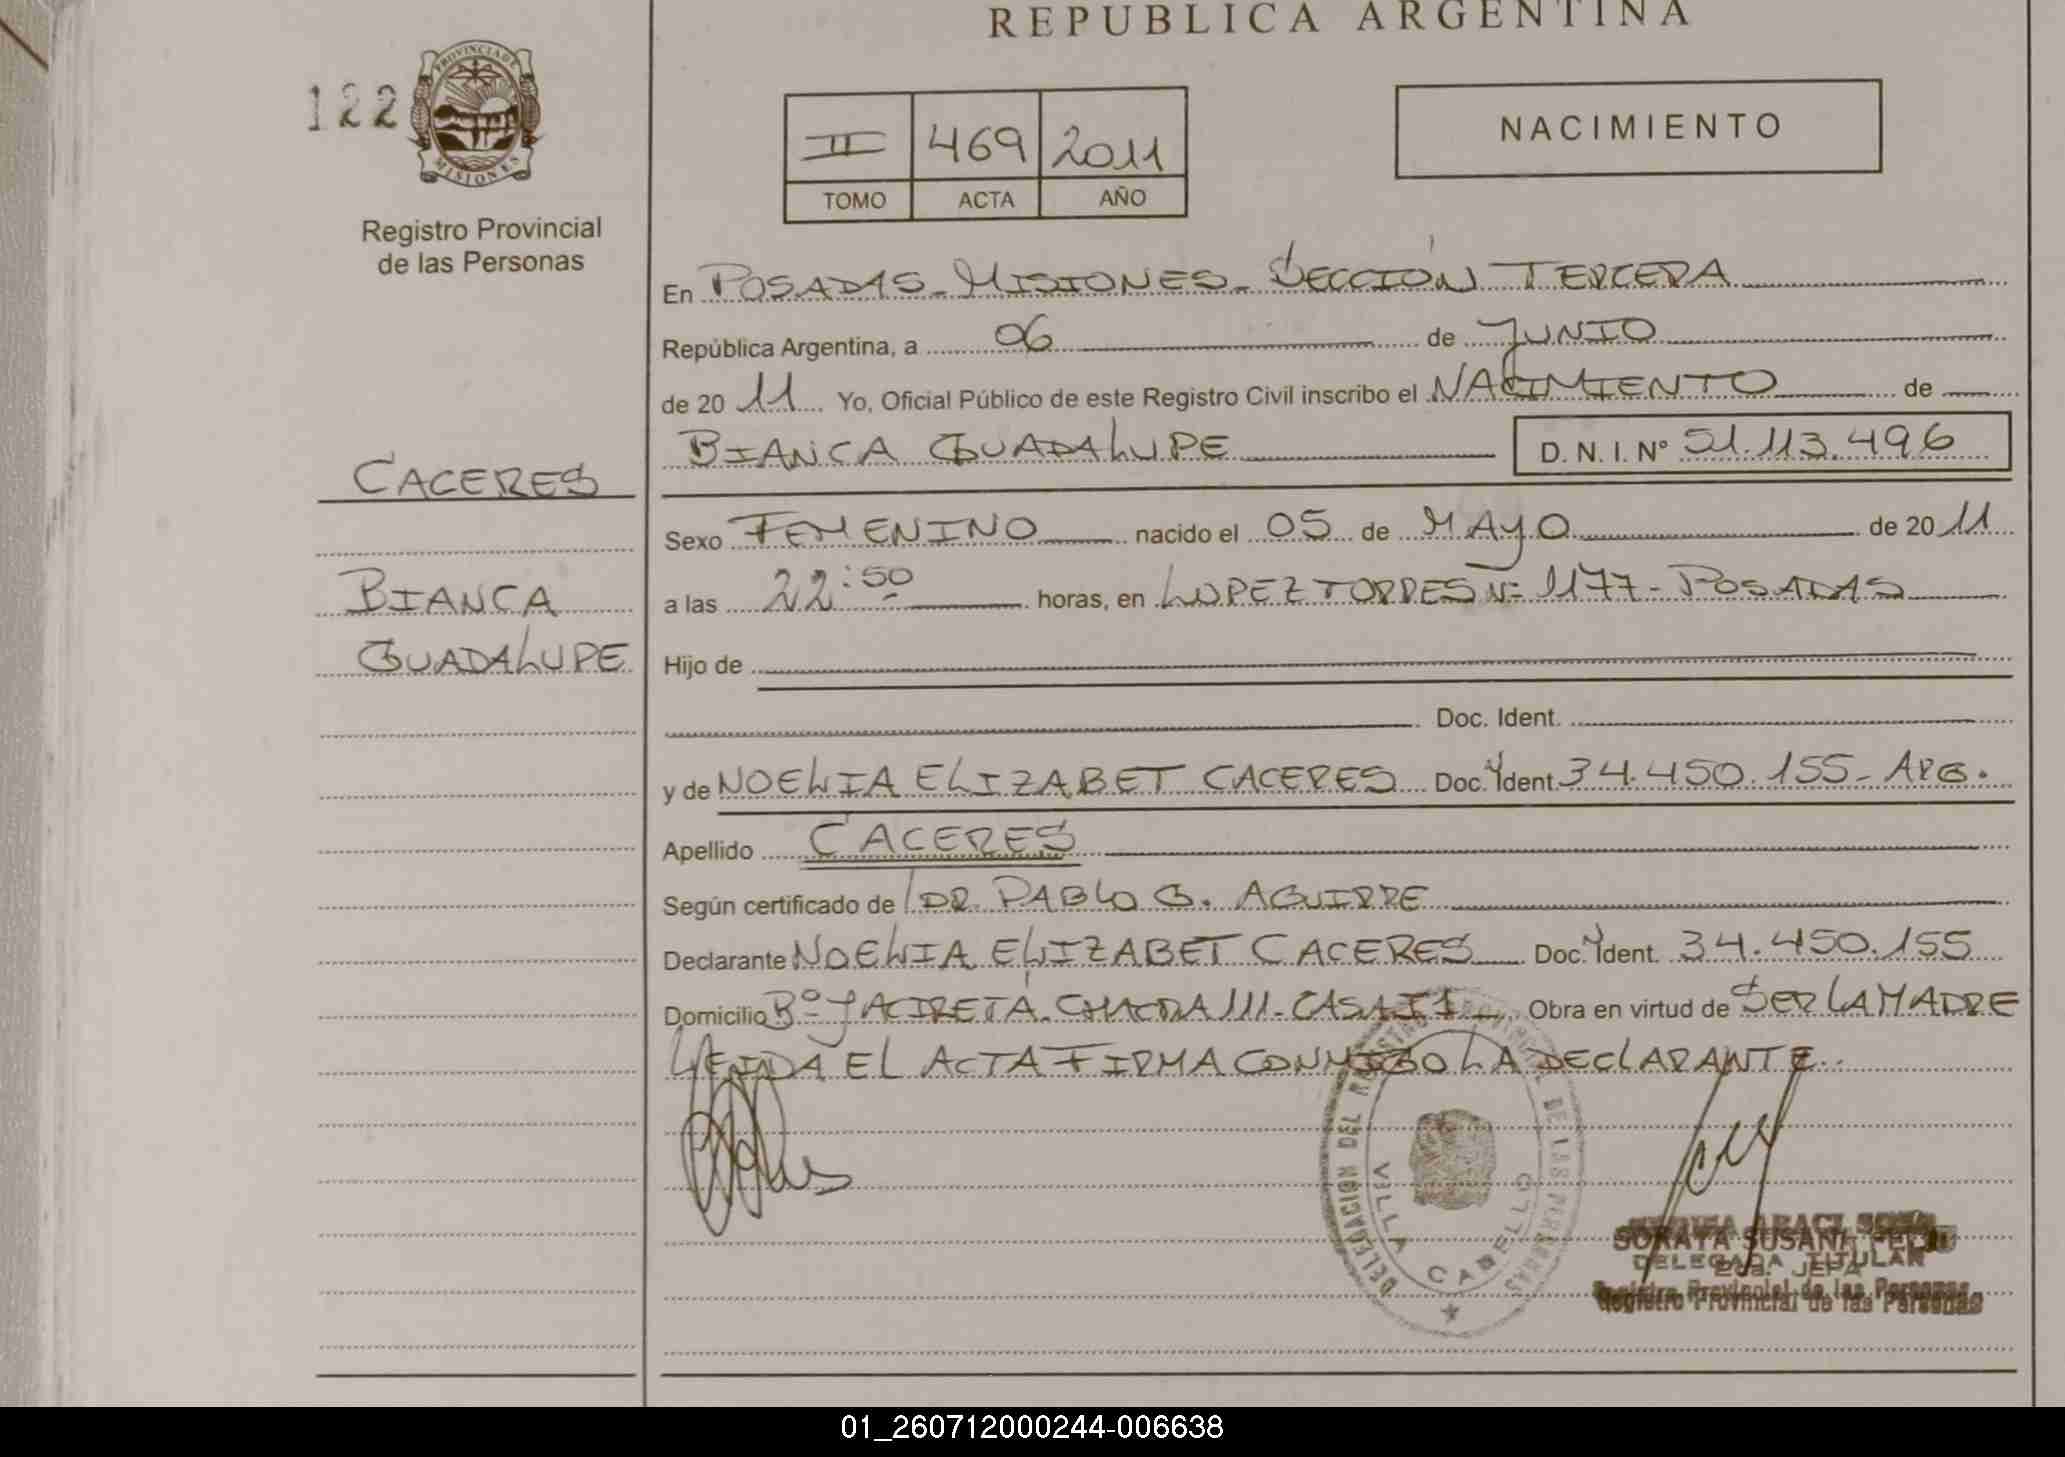 REPUBLICA ARGENTINA
122
PROVINCIA DE
MISIONES
Registro Provincial
de las Personas
II 469 2011
TOMO ACTA AÑO
NACIMIENTO
En POSADAS - MISIONES - SECCIÓN TERCERA
República Argentina, a 06 de JUNIO
de 2011 Yo, Oficial Público de este Registro Civil inscribo el NACIMIENTO de
BIANCA GUADALUPE D. N. I. Nº 51.113.496
CACERES
BIANCA
GUADALUPE
Sexo FEMENINO nacido el 05 de MAYO de 2011
a las 22:50 horas, en LOPEZ TORRES Nº 1177 - POSADAS
Hijo de
Doc. Ident.
y de NOELIA ELIZABET CACERES Doc. y Ident 34.450.155 - ARG.
Apellido CACERES
Según certificado de DR. PABLO G. AGUIRRE
Declarante NOELIA ELIZABET CACERES Doc. y Ident. 34.450.155
Domicilio Bº YACIRETÁ. CHACRA 111 - CASA Obra en virtud de SER LA MADRE
LEIDA EL ACTA FIRMA CONMIGO LA DECLARANTE.
DELEGACION DEL REGISTRO PROVINCIAL DE LAS PERSONAS
VILLA CABELLO
SORAYA SUSANA
DELEGADA TITULAR
JEFA
Registro Provincial de las Personas
Registro Provincial de las Personas
01_260712000244-006638